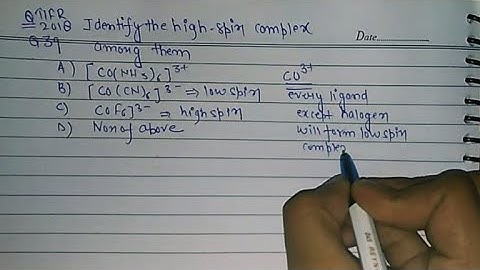 Q TIFR
2018
Q39
Identify the high-spin complex
among them
Date
A) [CO(NH3)6]3+
B) [CO(CN)6]3- ⇒ low spin
C) COF6]3- ⇒ high spin
D) Non of above
CO3+
every ligand
except halogen
will form low spin
complex